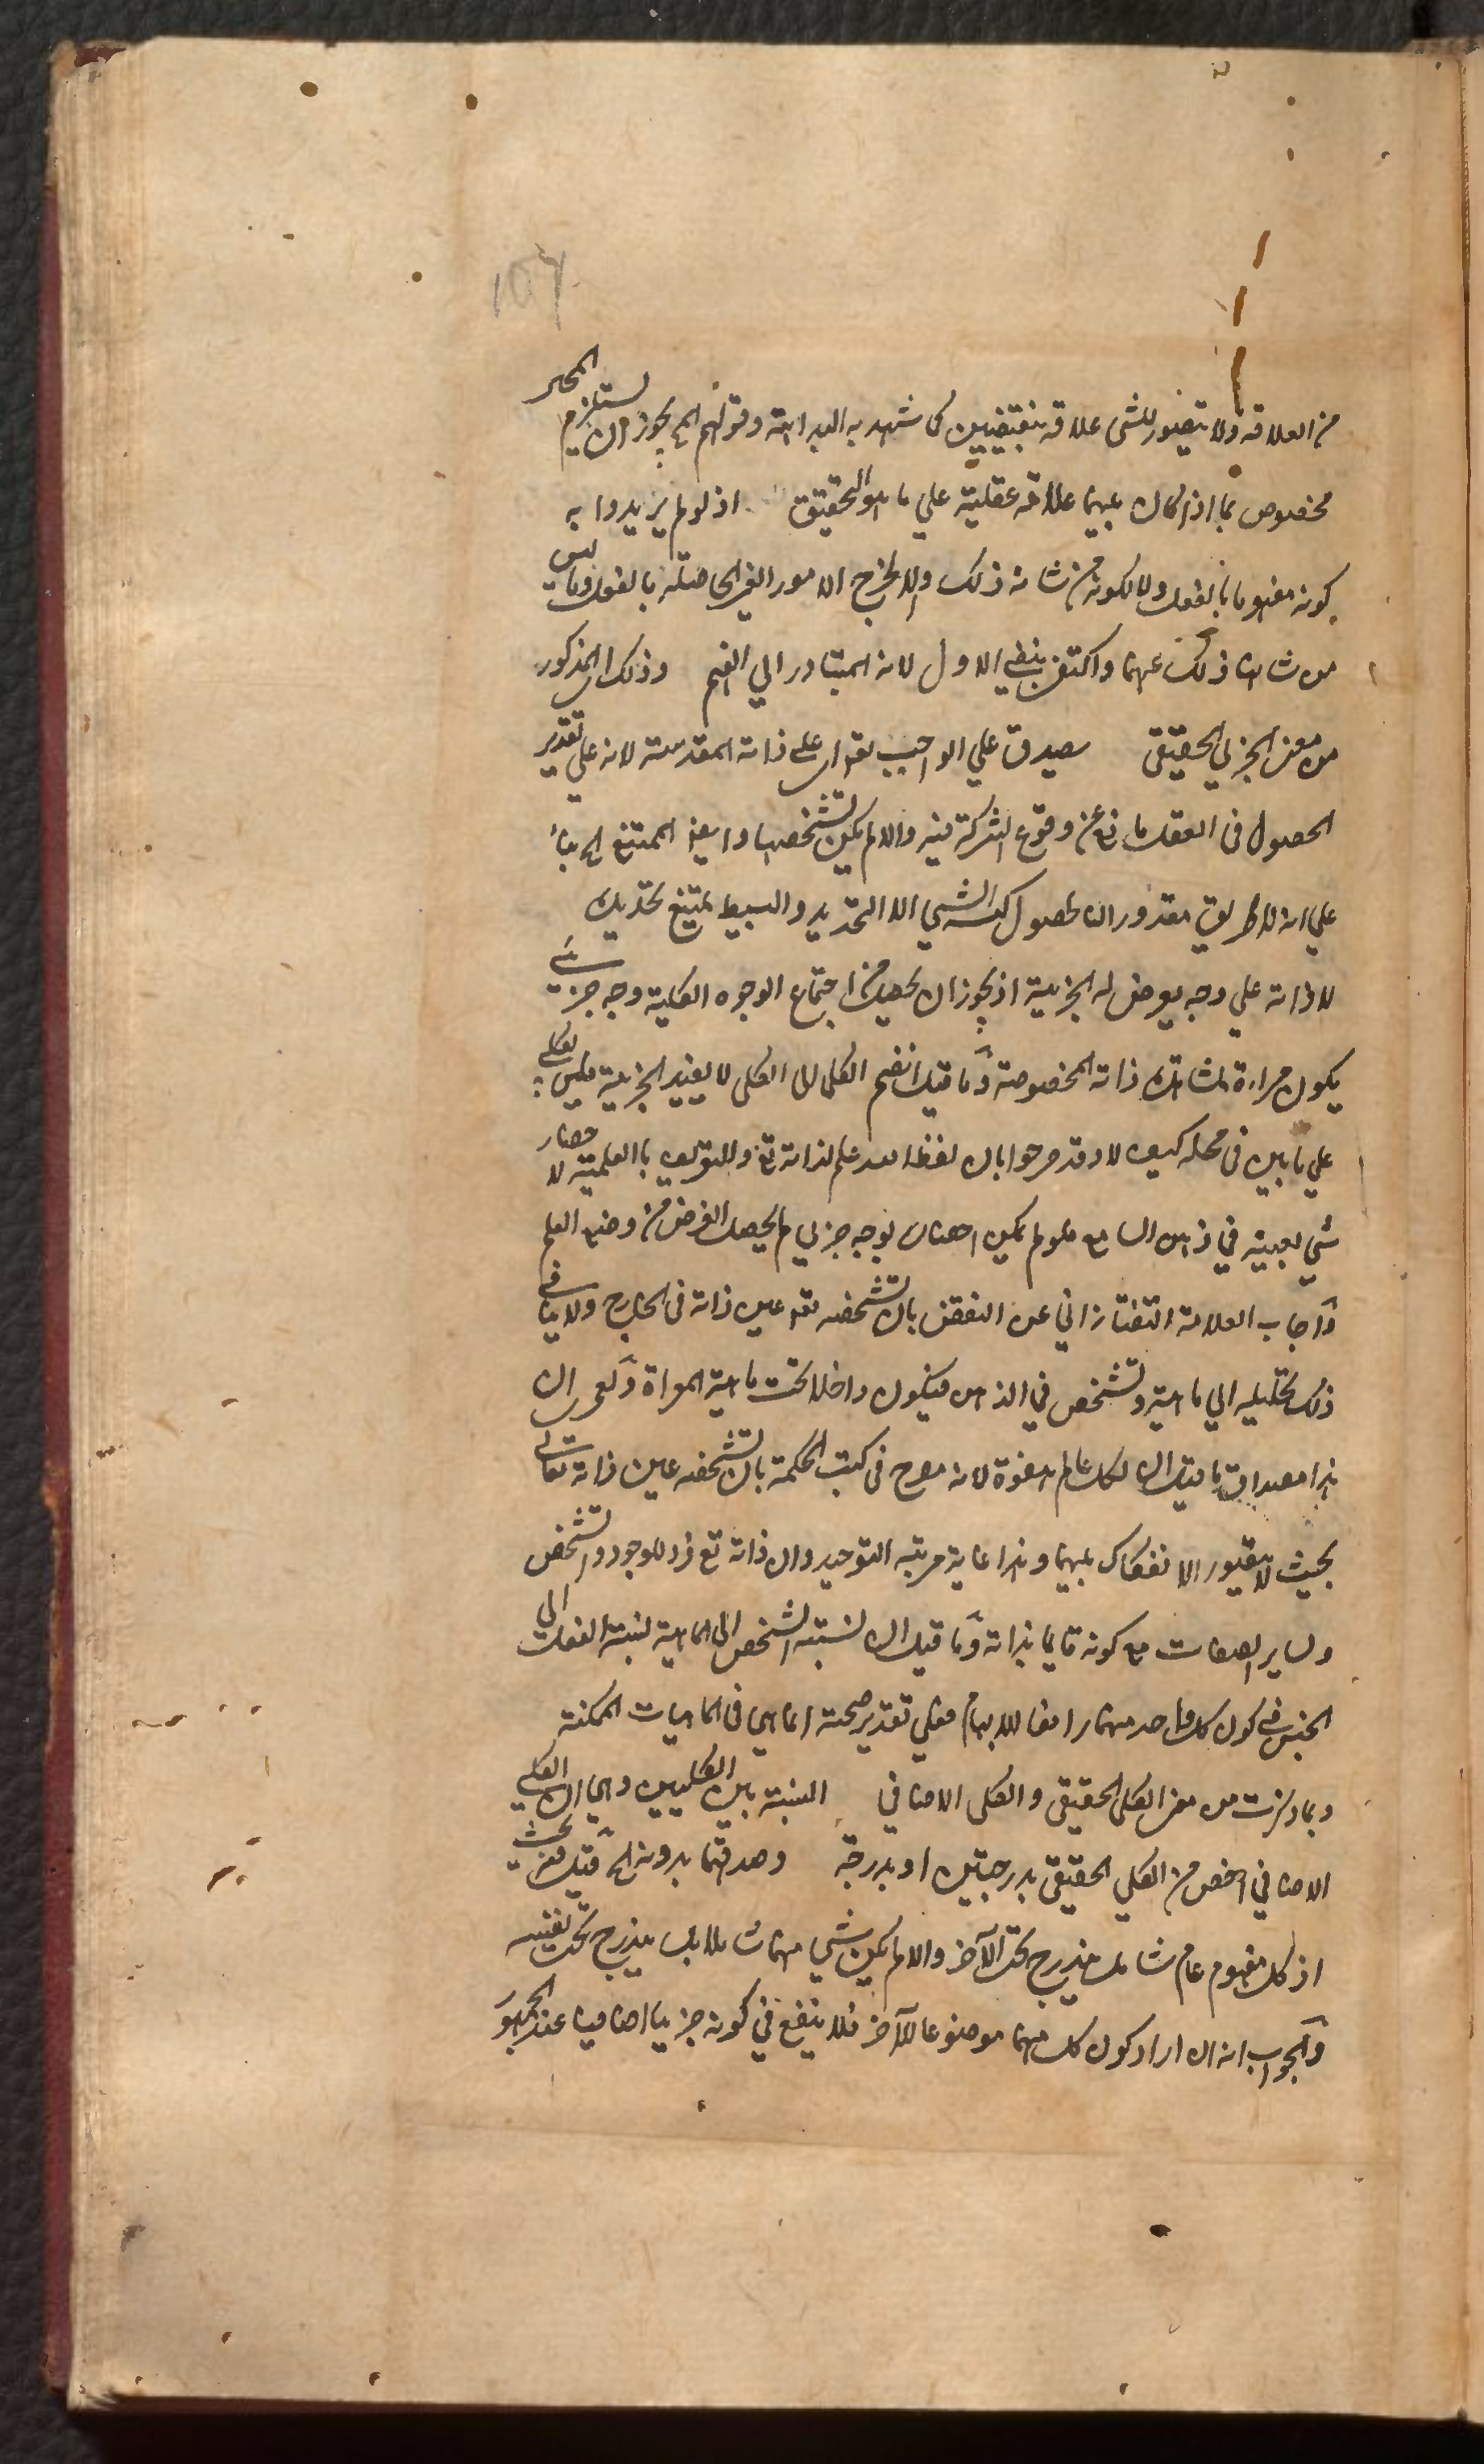 من العلاقة ولا يتصور للشي علاقة بنقيضين كما شهد به البداهة وقولهم المح يجوز ان يستلزم المحر
مخصوص بما اذا كان بينهما علاقة عقلية علي ما هو التحقيق اذ لو لم يريدوا به
كونه مفهوما بالفعل ولا كونه من شانه ذلك والا لخرج الامور الغير الحاصلة بالفعل وما ليس
من شانها ذلك عنهما واكتفى بنفي الاول لانه المبتادر الي الفهم وذلك اي المذكور
من معنى الجزئي الحقيقي يصدق علي الواجب تعـ اي علي ذاته المقدسة لانه علي تقدير
الحصول في العقل مانع عن وقوع الشركة فيه والا لم يكن تشخصها وايضا الممتنع
علي انه لا طريق مقدور لنا لحصول كنه الشي الا التحديد والبسيط يمتنع تحديده
لا ذاته علي وجه يعرض له الجزئية اذ يجوز ان يحصل من اجتماع الوجوه الكلية وجه جزئي
يكون مراءة لمشاهدة ذاته المخصوصة وما قيل انضم الكلي الي الكلي لا يفيد الجزئية فليس بكلي
علي ما بين في محله كيف لا وقد صرحوا بان لفظ الله علم لذاته تع وللتعريف بالعلمية لاحضار
شي بعينه في ذهن السامع فلو لم يكن احضاره بوجه جزئي لم يحصل الغرض من وضع العلم
واجاب العلامة التفتازاني عن النقض بان تشخصه تعـ عين ذاته في الخارج ولا ينافي
ذلك تحليله الي ماهية وتشخص في الذهن فيكون داخلا تحت ماهية المراة ولعمري ان
هذا مصداق ما قيل ان لكل عالم هفوة لانه صرح في كتب الحكمة بان تشخصه عين ذاته تعالي
بحيث لا يتصور الانفكاك بينهما وهذا غاية مرتبه التوحيد وان ذاته تع فرد للوجود والتشخص
ولساير الصفات مع كونه قايما بذاته وما قيل ان نسبة التشخص الي الماهية نسبة الفصل الي
الجنس في كون كل واحد منهما رافعا للابهام فعلي تقدير صحته انما هي في الماهيات الممكنة
وبما ذكرت من معنى الكلي الحقيقي والكلي الاضافي النسبة بين الكليين وهي ان الكلي
الاضافي اخص من الكلي الحقيقي بدرجتين او بدرجة وصدقهما بدونه الخ قيل فيه بحث
اذ كل مفهوم عام شامل يندرج تحت الآخر والا لم يكن شي منهما شاملا بل يندرج تحت نفسه
والجواب انه ان اراد كون كل منهما موضوعا للآخر فلا ينفع في كونه جزييا اضافيا عند الجمهور